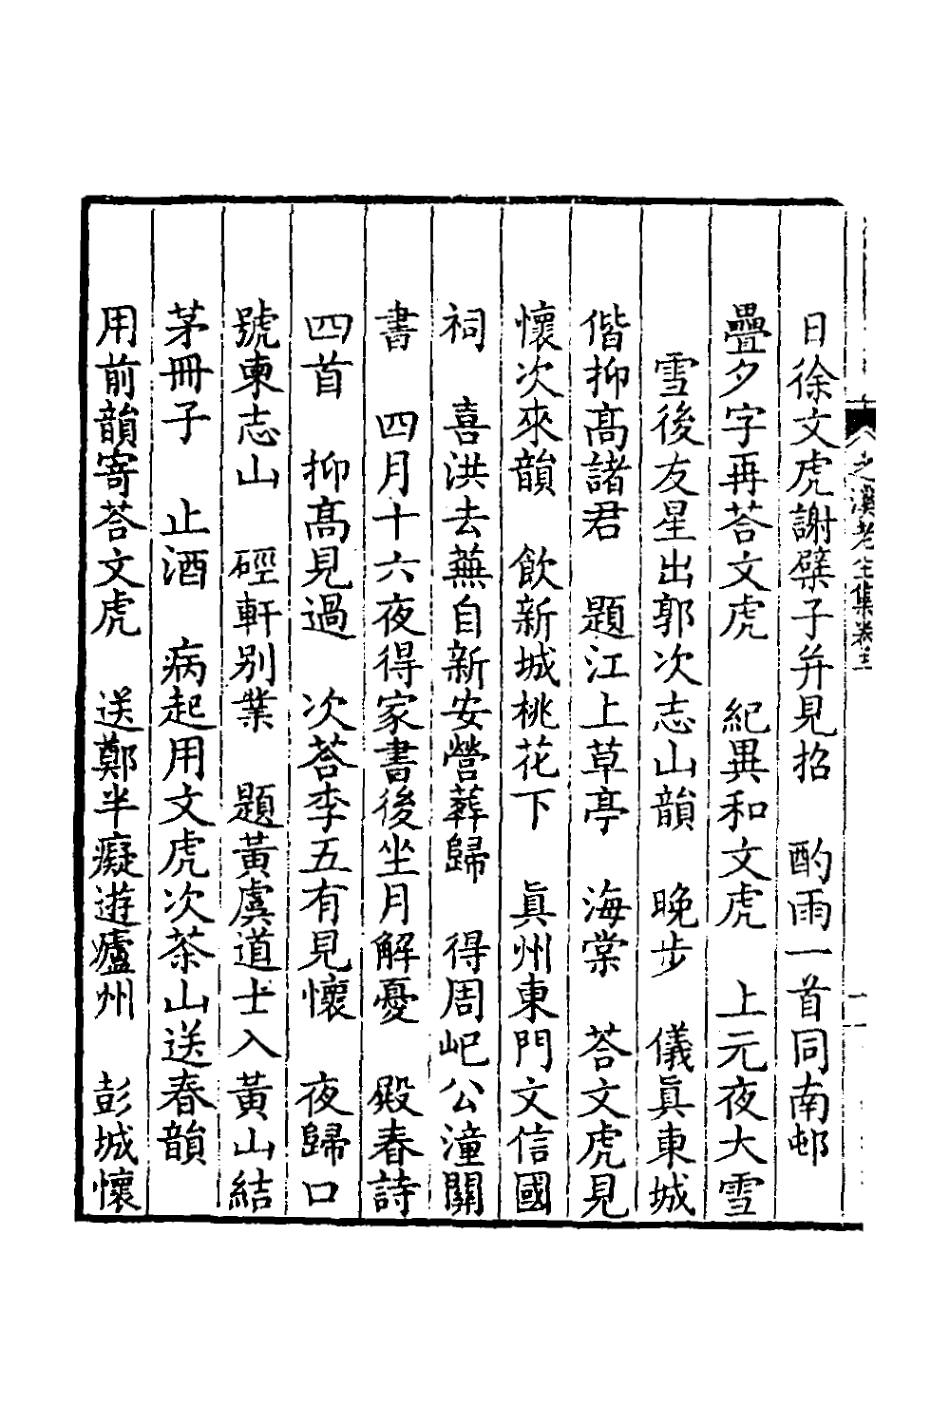 之溪老生集卷三
日徐文虎謝檗子并見招　酌雨一首同南邨
疊夕字再荅文虎　紀異和文虎　上元夜大雪
雪後友星出郭次志山韻　晚步　儀眞東城
偕抑高諸君　題江上草亭　海棠　荅文虎見
懷次來韻　飲新城桃花下　眞州東門文信國
祠　喜洪去蕪自新安營葬歸　得周屺公潼關
書　四月十六夜得家書後坐月解憂　殿春詩
四首　抑高見過　次荅李五有見懷　夜歸口
號柬志山　硜軒别業　題黃虞道士入黃山結
茅冊子　止酒　病起用文虎次茶山送春韻
用前韻寄荅文虎　送鄭半癡遊廬州　彭城懷